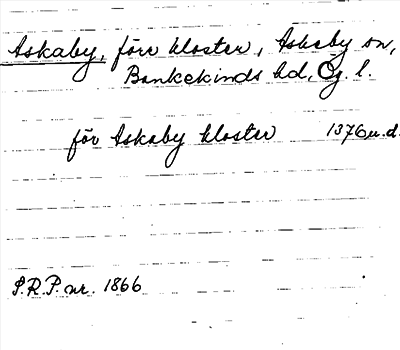 Askaby, förr kloster, Askeby sn,
Bankekinds hd, Ög. l.
för Askaby kloster 1376 u.d.
S.R.P. nr. 1866